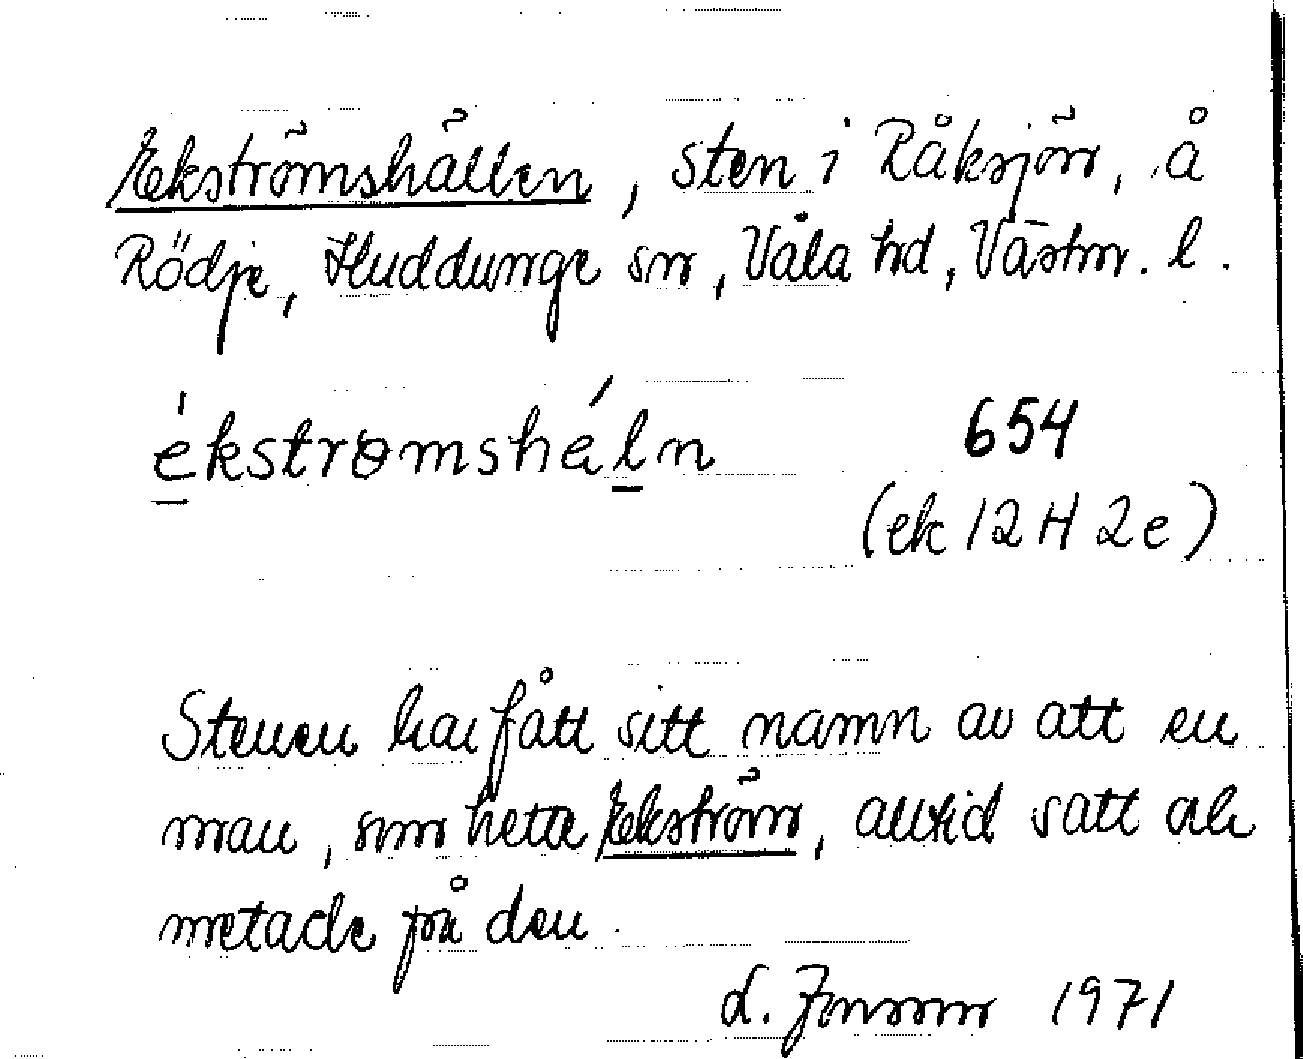 Ekströmshällen, sten i Råksjön, å
Rödje, Huddunge sn, Våla hd, Västm. l.
ékstrømshéln 654
(ek 12 H 2e)
Stenen har fått sitt namn av att en
man, som hette Ekström, alltid satt och
metade på den
L. Jonsson 1971